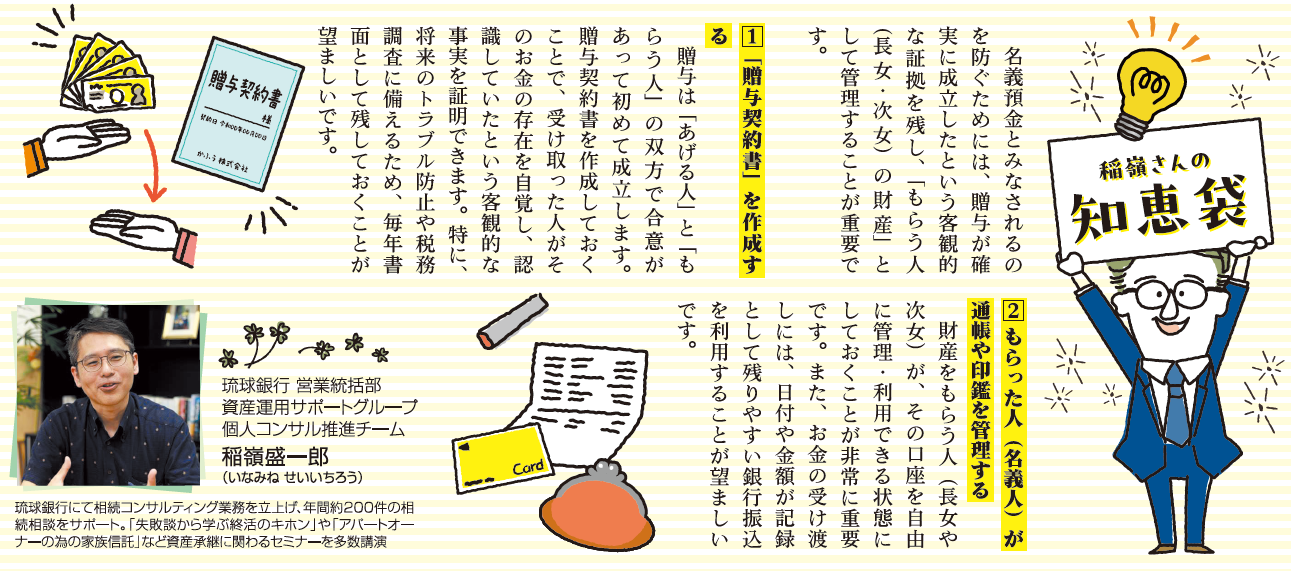 稲嶺さんの
知恵袋
名義預金とみなされるの
を防ぐためには、贈与が確
実に成立したという客観的
な証拠を残し、「もらう人
（長女・次女）の財産」と
して管理することが重要で
す。
1「贈与契約書」を作成す
る
贈与は「あげる人」と「も
らう人」の双方で合意が
あって初めて成立します。
贈与契約書を作成しておく
ことで、受け取った人がそ
のお金の存在を自覚し、認
識していたという客観的な
事実を証明できます。特に、
将来のトラブル防止や税務
調査に備えるため、毎年書
面として残しておくことが
望ましいです。
贈与契約書
様
契約日 令和00年00月00日
かふう株式会社
2もらった人（名義人）が
通帳や印鑑を管理する
財産をもらう人（長女や
次女）が、その口座を自由
に管理・利用できる状態に
しておくことが非常に重要
です。また、お金の受け渡
しには、日付や金額が記録
として残りやすい銀行振込
を利用することが望ましい
です。
Card
琉球銀行 営業統括部
資産運用サポートグループ
個人コンサル推進チーム
稲嶺盛一郎
（いなみね せいいちろう）
琉球銀行にて相続コンサルティング業務を立上げ、年間約200件の相
続相談をサポート。「失敗談から学ぶ終活のキホン」や「アパートオー
ナーの為の家族信託」など資産承継に関わるセミナーを多数講演